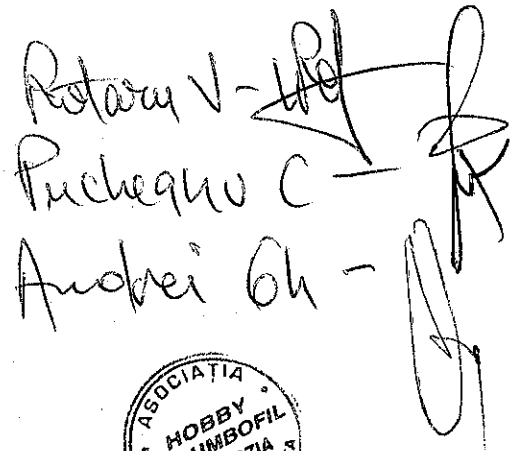 Rotaru V -
Pucheanu C -
Andrei Gh -
ASOCIAȚIA
HOBBY